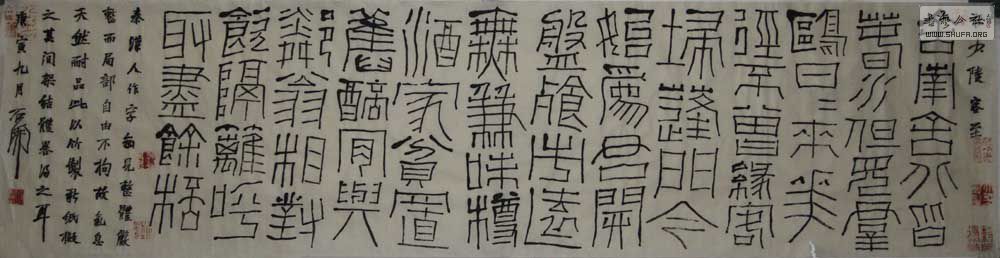 少陵客至
舍南舍北皆
春水但見羣
鷗日=來花
徑不曾緣客
掃蓬門今
始為君開
盤飧市遠
無兼味樽
酒家貧
舊醅肯與
鄰翁相對
飲隔籬呼
取盡餘杯
秦隸人作字每見整體嚴
而局部自由不拘故氣息
天然耐品此以竹製新紙擬
之其間架結體得之耳
庚寅九月石開
書法公社
WWW.SHUFA.ORG